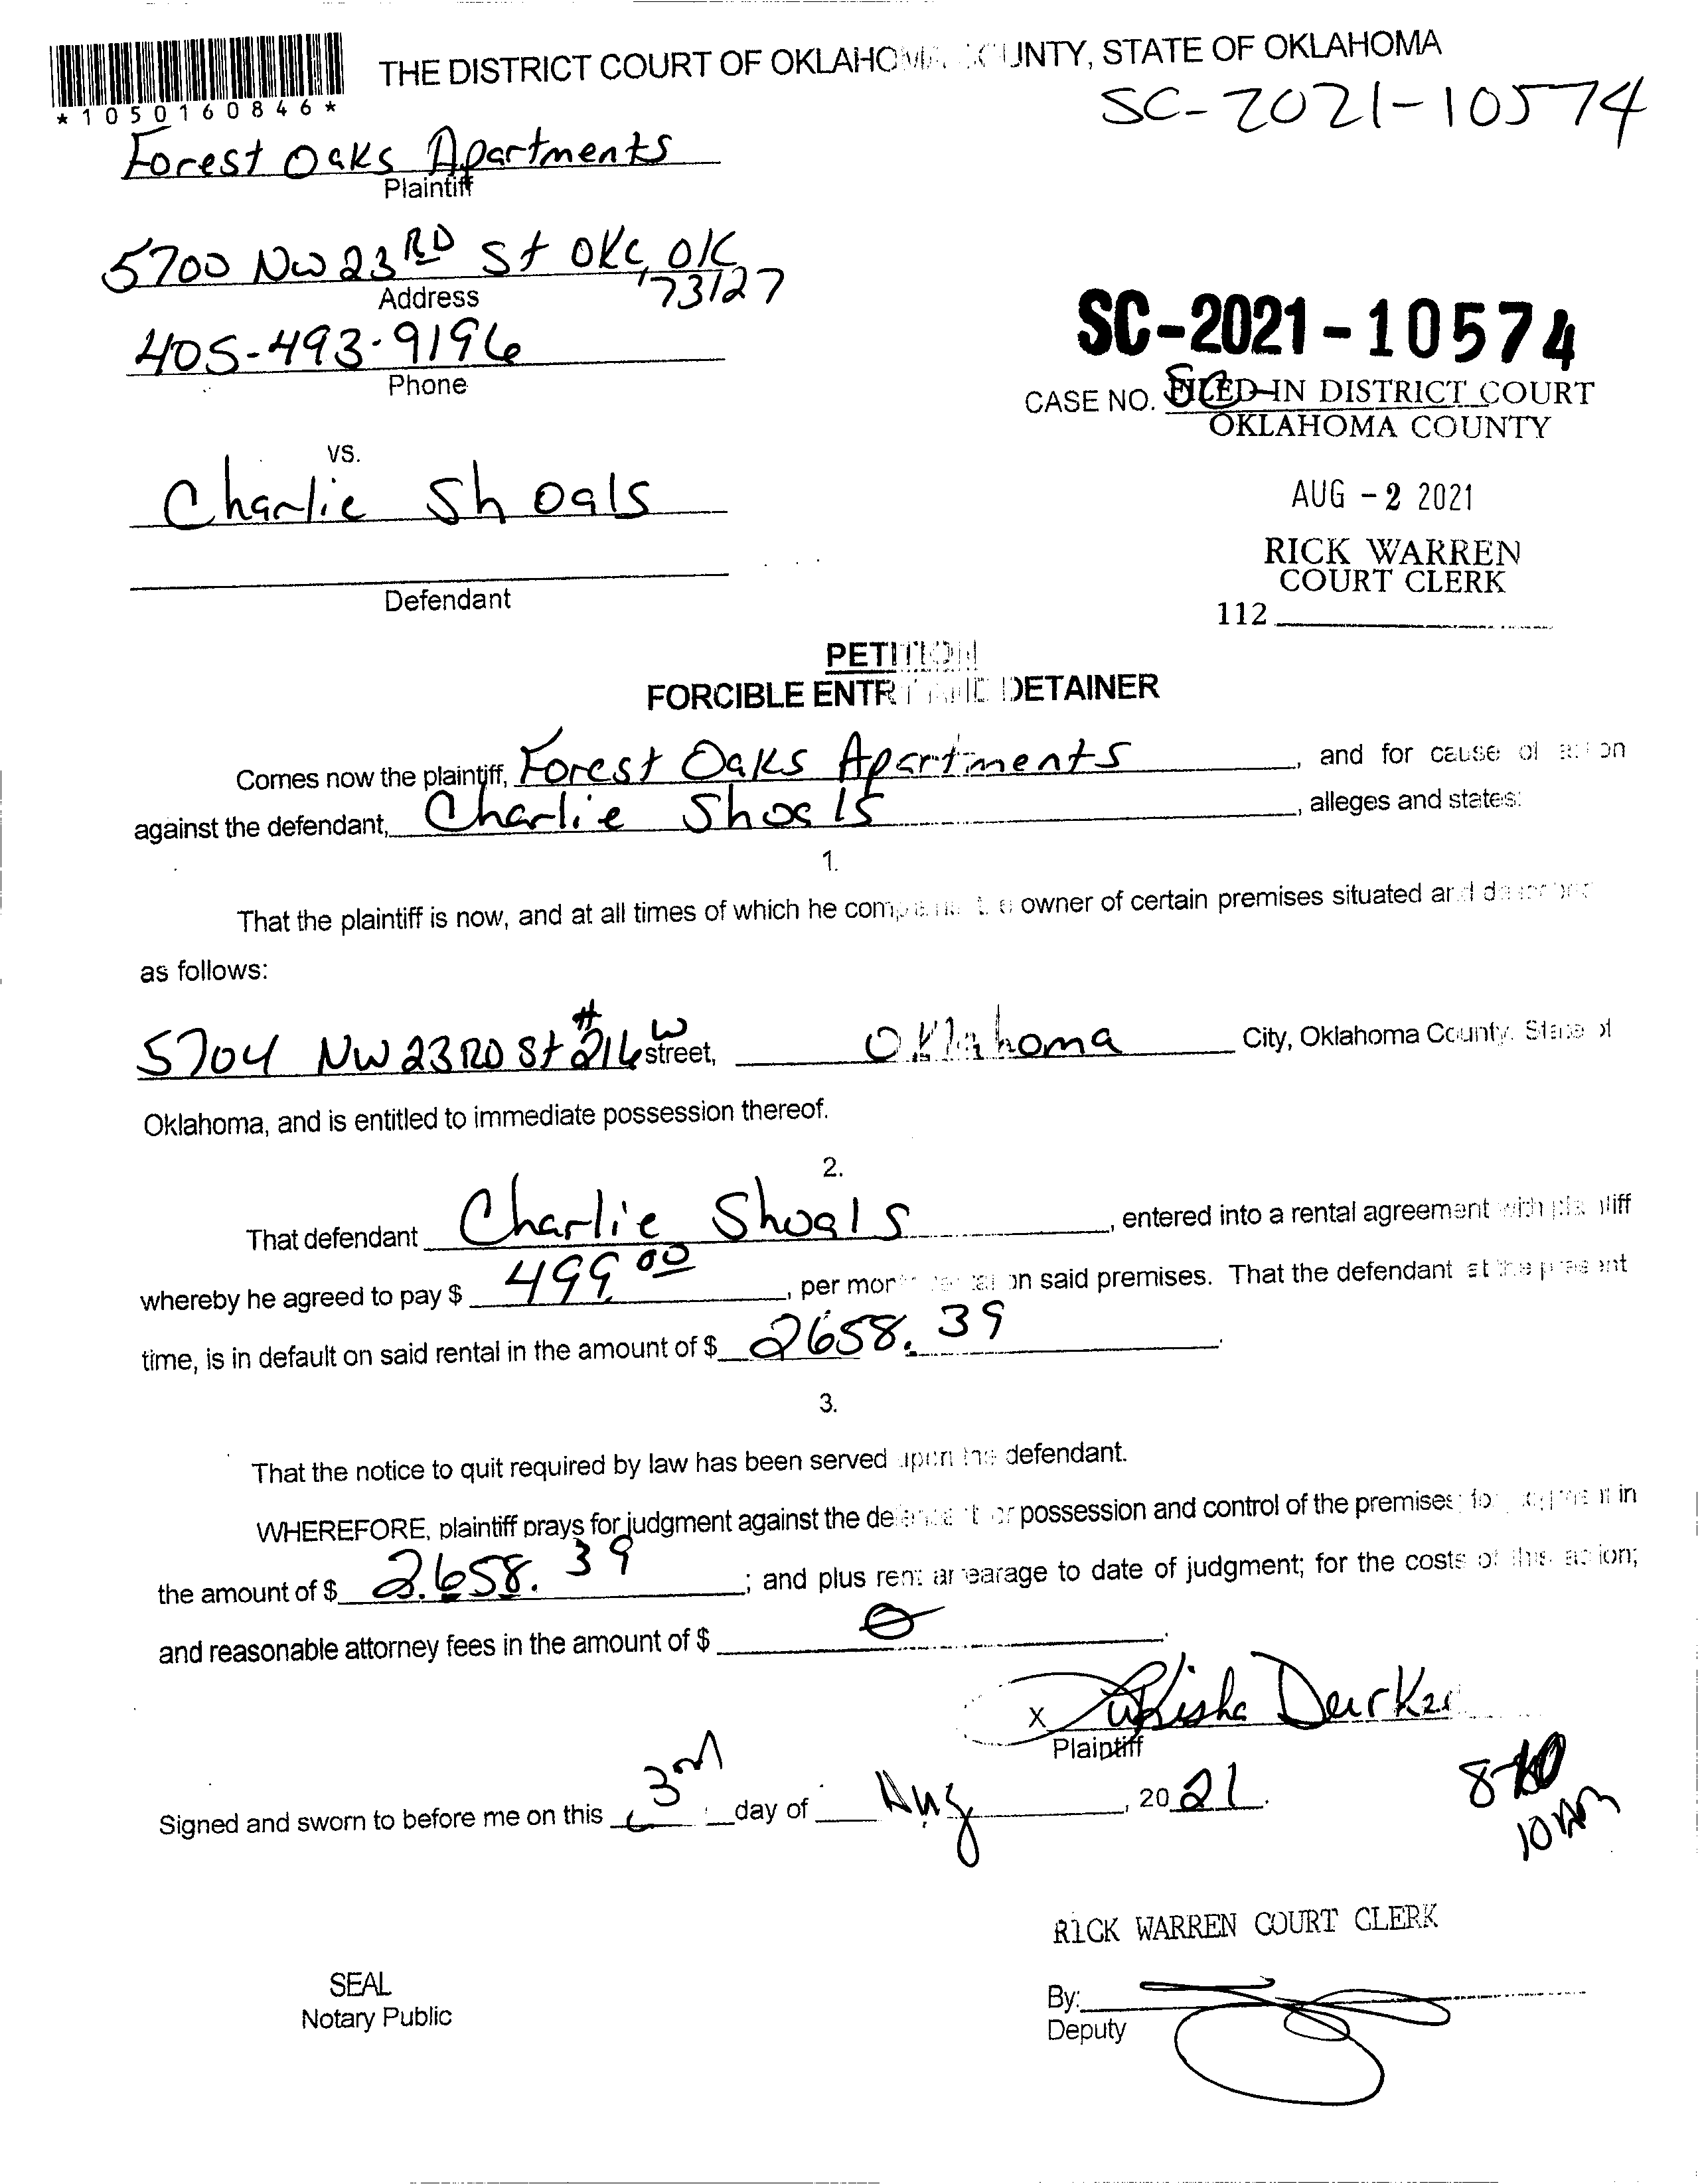 THE DISTRICT COURT OF OKLAHOMA COUNTY, STATE OF OKLAHOMA
*1050160846*
SC-2021-10574
Forest Oaks Apartments
Plaintiff
5700 NW 23RD St OKC, OK
73127
Address
405-493-9196
Phone
SC-2021-10574
CASE NO. SC-
FILED IN DISTRICT COURT
OKLAHOMA COUNTY
vs.
Charlie Shoals
AUG -2 2021
RICK WARREN
COURT CLERK
Defendant
112
PETITION
FORCIBLE ENTRY AND DETAINER
Comes now the plaintiff, Forest Oaks Apartments, and for cause of action
against the defendant, Charlie Shoals, alleges and states:
1.
That the plaintiff is now, and at all times of which he complains the owner of certain premises situated and described
as follows:
5704 NW 23RD St #216W street, Oklahoma City, Oklahoma County, State of
Oklahoma, and is entitled to immediate possession thereof.
2.
That defendant Charlie Shoals, entered into a rental agreement with plaintiff
whereby he agreed to pay $ 499.00, per month rental on said premises. That the defendant at the present
time, is in default on said rental in the amount of $ 2658.39.
3.
That the notice to quit required by law has been served upon the defendant.
WHEREFORE, plaintiff prays for judgment against the defendant for possession and control of the premises; for judgment in
the amount of $ 2,658.39; and plus rent arrearage to date of judgment; for the costs of this action;
and reasonable attorney fees in the amount of $ 0.
X Durker
Plaintiff
Signed and sworn to before me on this 3rd day of Aug, 2021.
10 AM
RICK WARREN COURT CLERK
SEAL
Notary Public
By:
Deputy